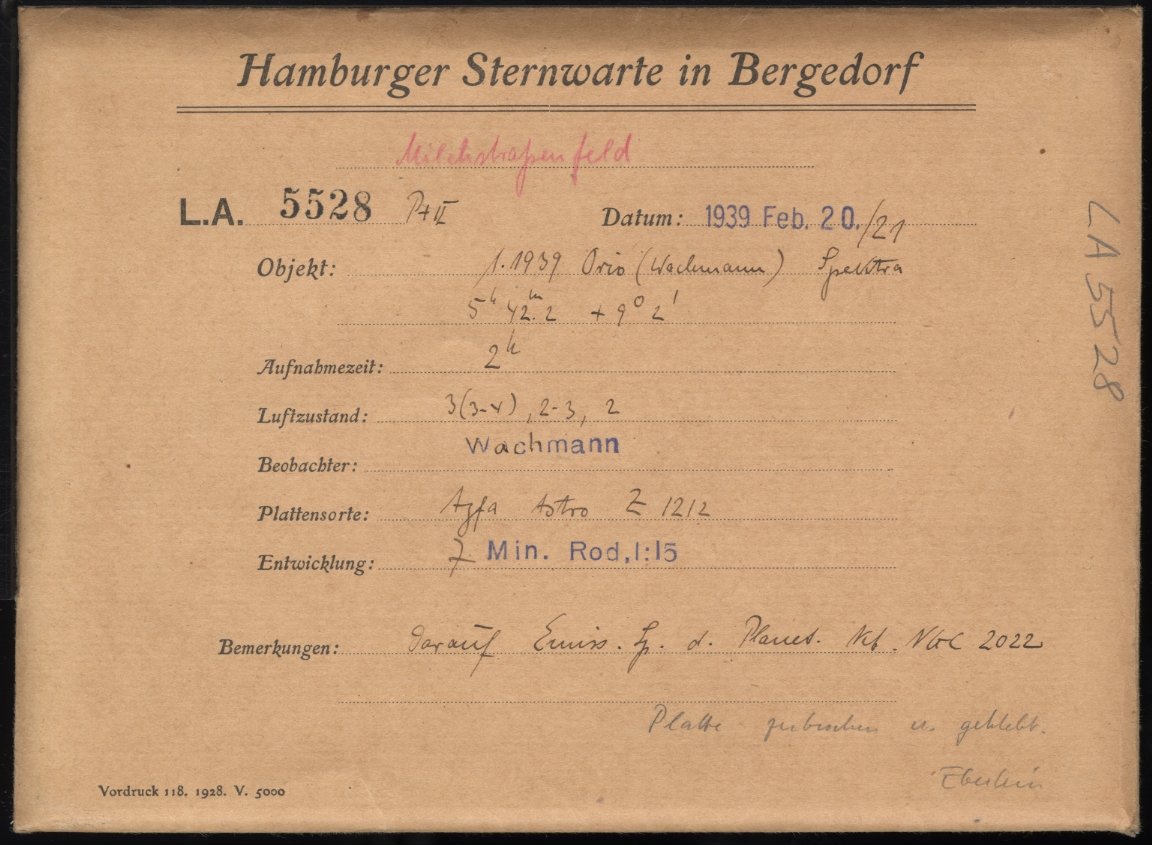 Hamburger Sternwarte in Bergedorf
Milchstraßenfeld
L.A. 5528 P+II Datum: 1939 Feb. 20./21
Objekt: 1.1939 Orio (Wachmann) Spektra
5ʰ 42ᵐ.2 + 9⁰ 2'
Aufnahmezeit: 2ʰ
Luftzustand: 3(3-4), 2-3, 2
Wachmann
Beobachter:
Plattensorte: Agfa Astro Z 1212
Entwicklung: 7 Min. Rod,1:15
Bemerkungen: darauf Emiss. Sp. d. Planet. Neb. NGC 2022
Platte zerbrochen u. geklebt.
Vordruck 118. 1928. V. 5000
LA 5528